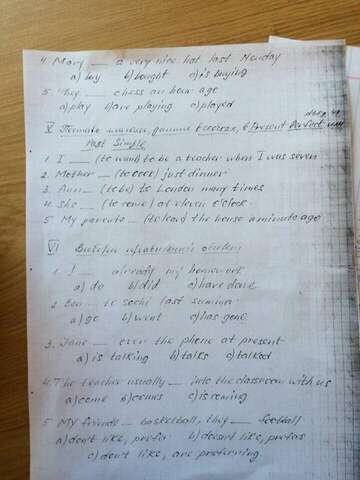 4. Mary __ a very nice hat last Monday
a) buy b) bought c) is buying
5. They __ chess an hour ago
a) play b) are playing c) played
V данные в Present Perfect или
Past Simple
1. I __ (to want) to be a teacher when I was seven
2. Mother __ (to cook) just dinner
3. Ann __ (to be) to London many times
4. She __ (to come) at eleven o'clock
5 My parents __ (to leave) the house a minute ago
VI
1. I __ already my homework
a) do b) did c) have done
2. Ben __ to Sochi last summer
a) go b) went c) has gone
3. Jane __ over the phone at present
a) is talking b) talks c) talked
4. The teacher usually __ into the classroom with us
a) come b) comes c) is coming
5 My friends __ basketball, they __ football
a) don't like, prefer b) doesn't like, prefers
c) don't like, are preferring